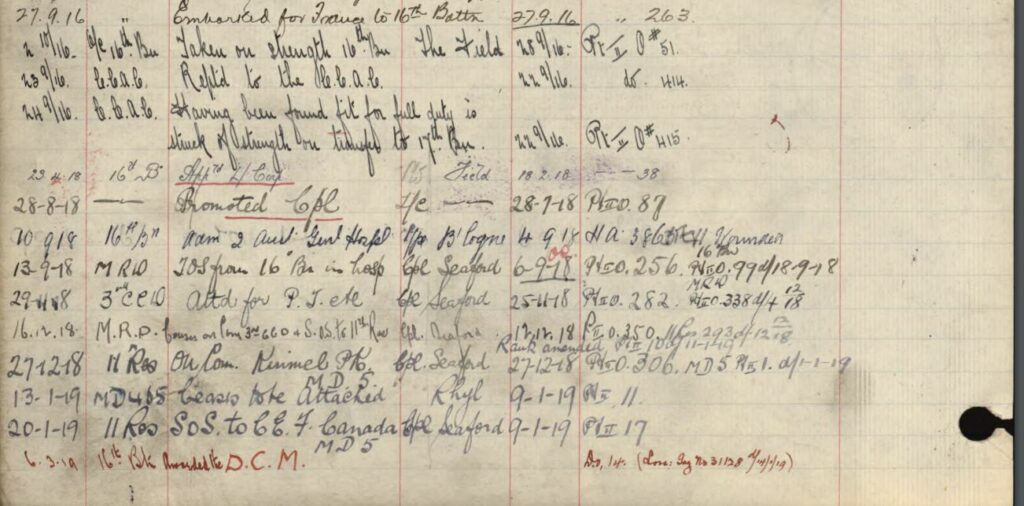 27.9.16 Embarked for France to 16th Battn 27.9.16 " 263.
2 10/16. O/C 16th Bn Taken on strength 16th Bn The Field 28 9/16. Pt II O # 51.
23 9/16. C.C.A.C. Rept'd to the C.C.A.C. 22 9/16. do. 414.
24 9/16. C.C.A.C. Having been found fit for full duty is
struck off strength on transfer to 17th Bn. 22 9/16. Pt II O # 415
23.4.18 16th Bn App'td L/Corp Field 18.2.18 — 38
28-8-18 — Promoted Cpl — 28-7-18 Pt II O. 87
10 9 18 16th Bn Adm 2 Aust Genl Hospl B'logne 4 9 18 HA Wounded
16th Bn
13-9-18 MRD TOS from 16th Bn in hosp Cpl Seaford 6-9-18 Pt II O. 256. Pt II O. 99 d/18-9-18
MRD
29-11-18 3rd CCD Attd for P.T. etc Cpl Seaford 25-11-18 Pt II O. 282. Pt II O. 338 d/4 12/18
16.12.18. M.R.D. 3rd CCD & S.O.S. to 11th Res Cpl. Seaford 12.12.18 Pt II O. 350. 11 Res 293 d/ 12 12/18
Rank amended
27-12-18 11 Res On Com. Kinmel Pk. Cpl. Seaford 27-12-18 Pt II O. 306. MD5 Pt II 1. d/1-1-19
M.D.5
13-1-19 MD 4 & 5 Ceases to be Attached Rhyl 9-1-19 Pt II. 11.
20-1-19 11 Res S.O.S. to C.E.F. Canada Cpl Seaford 9-1-19 Pt II 17
MD5
6.3.19 16th Bn Awarded the D.C.M. D.O. 14. (Lon: Gaz No 31128